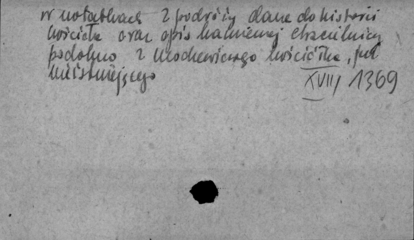 w notatkach z podróży dane do historii
kościoła oraz opis kamiennej chrzcielnicy
podobno z kościółka, już
nieistniejącego XVIII 1369